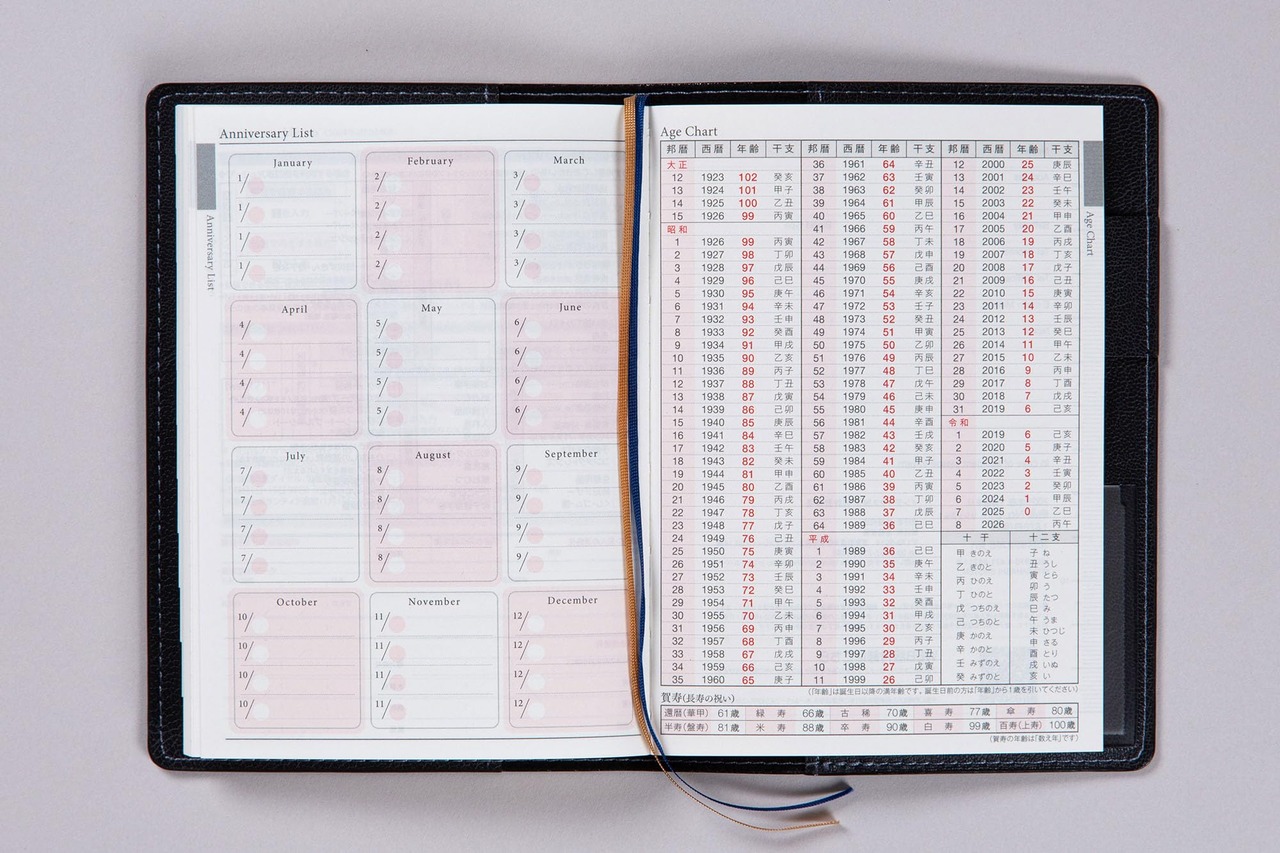 Anniversary List
Anniversary List
January February March
1/ 2/ 3/
1/ 2/ 3/
1/ 2/ 3/
1/ 2/ 3/
April May June
4/ 5/ 6/
4/ 5/ 6/
4/ 5/ 6/
4/ 5/ 6/
July August September
7/ 8/ 9/
7/ 8/ 9/
7/ 8/ 9/
7/ 8/ 9/
October November December
10/ 11/ 12/
10/ 11/ 12/
10/ 11/ 12/
10/ 11/ 12/
Age Chart
Age Chart
邦暦 西暦 年齢 干支
大正
12 1923 102 癸亥
13 1924 101 甲子
14 1925 100 乙丑
15 1926 99 丙寅
昭和
1 1926 99 丙寅
2 1927 98 丁卯
3 1928 97 戊辰
4 1929 96 己巳
5 1930 95 庚午
6 1931 94 辛未
7 1932 93 壬申
8 1933 92 癸酉
9 1934 91 甲戌
10 1935 90 乙亥
11 1936 89 丙子
12 1937 88 丁丑
13 1938 87 戊寅
14 1939 86 己卯
15 1940 85 庚辰
16 1941 84 辛巳
17 1942 83 壬午
18 1943 82 癸未
19 1944 81 甲申
20 1945 80 乙酉
21 1946 79 丙戌
22 1947 78 丁亥
23 1948 77 戊子
24 1949 76 己丑
25 1950 75 庚寅
26 1951 74 辛卯
27 1952 73 壬辰
28 1953 72 癸巳
29 1954 71 甲午
30 1955 70 乙未
31 1956 69 丙申
32 1957 68 丁酉
33 1958 67 戊戌
34 1959 66 己亥
35 1960 65 庚子
邦暦 西暦 年齢 干支
36 1961 64 辛丑
37 1962 63 壬寅
38 1963 62 癸卯
39 1964 61 甲辰
40 1965 60 乙巳
41 1966 59 丙午
42 1967 58 丁未
43 1968 57 戊申
44 1969 56 己酉
45 1970 55 庚戌
46 1971 54 辛亥
47 1972 53 壬子
48 1973 52 癸丑
49 1974 51 甲寅
50 1975 50 乙卯
51 1976 49 丙辰
52 1977 48 丁巳
53 1978 47 戊午
54 1979 46 己未
55 1980 45 庚申
56 1981 44 辛酉
57 1982 43 壬戌
58 1983 42 癸亥
59 1984 41 甲子
60 1985 40 乙丑
61 1986 39 丙寅
62 1987 38 丁卯
63 1988 37 戊辰
64 1989 36 己巳
平成
1 1989 36 己巳
2 1990 35 庚午
3 1991 34 辛未
4 1992 33 壬申
5 1993 32 癸酉
6 1994 31 甲戌
7 1995 30 乙亥
8 1996 29 丙子
9 1997 28 丁丑
10 1998 27 戊寅
11 1999 26 己卯
邦暦 西暦 年齢 干支
12 2000 25 庚辰
13 2001 24 辛巳
14 2002 23 壬午
15 2003 22 癸未
16 2004 21 甲申
17 2005 20 乙酉
18 2006 19 丙戌
19 2007 18 丁亥
20 2008 17 戊子
21 2009 16 己丑
22 2010 15 庚寅
23 2011 14 辛卯
24 2012 13 壬辰
25 2013 12 癸巳
26 2014 11 甲午
27 2015 10 乙未
28 2016 9 丙申
29 2017 8 丁酉
30 2018 7 戊戌
31 2019 6 己亥
令和
1 2019 6 己亥
2 2020 5 庚子
3 2021 4 辛丑
4 2022 3 壬寅
5 2023 2 癸卯
6 2024 1 甲辰
7 2025 0 乙巳
8 2026 丙午
十干
甲 きのえ
乙 きのと
丙 ひのえ
丁 ひのと
戊 つちのえ
己 つちのと
庚 かのえ
辛 かのと
壬 みずのえ
癸 みずのと
十二支
子 ね
丑 うし
寅 とら
卯 う
辰 たつ
巳 み
午 うま
未 ひつじ
申 さる
酉 とり
戌 いぬ
亥 い
(「年齢」は誕生日以降の満年齢です。誕生日前の方は「年齢」から1歳を引いてください)
賀寿(長寿の祝い)
還暦(華甲) 61歳 緑寿 66歳 古稀 70歳 喜寿 77歳 傘寿 80歳
半寿(盤寿) 81歳 米寿 88歳 卒寿 90歳 白寿 99歳 百寿(上寿) 100歳
(賀寿の年齢は「数え年」です)